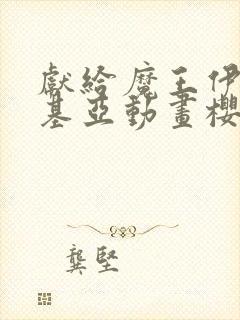 獻給魔王伊
基亞動畫櫻
龔堅